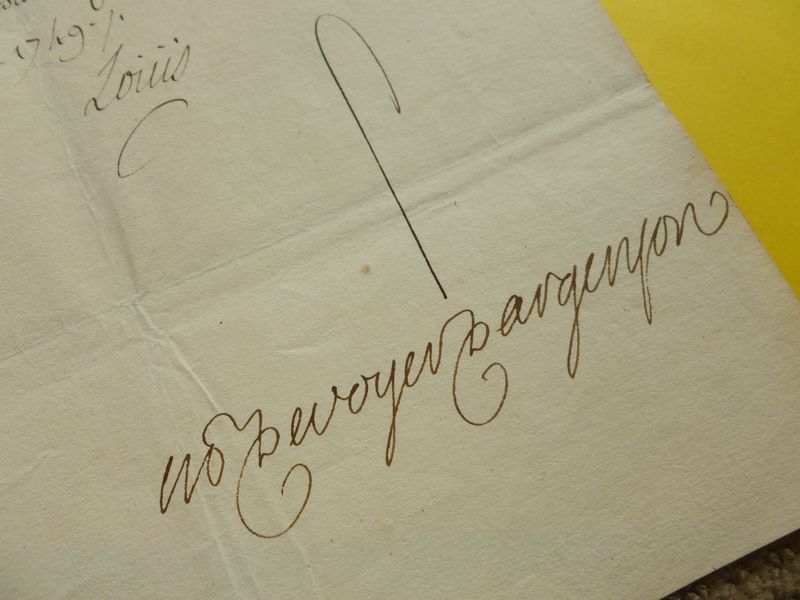 1749./.
Louis
M de voyer d'argenson